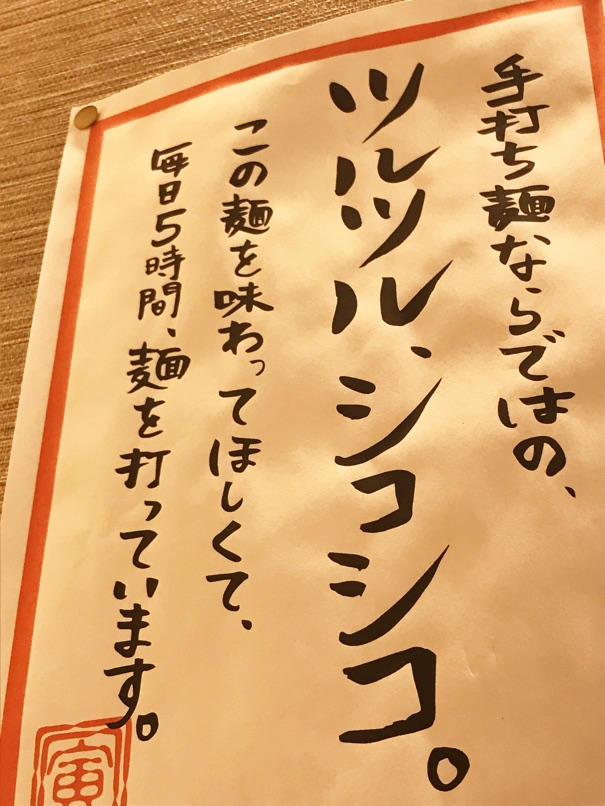 手打ち麺ならではの、
ツルツル、シコシコ。
この麺を味わってほしくて、
毎日5時間、麺を打っています。
寅